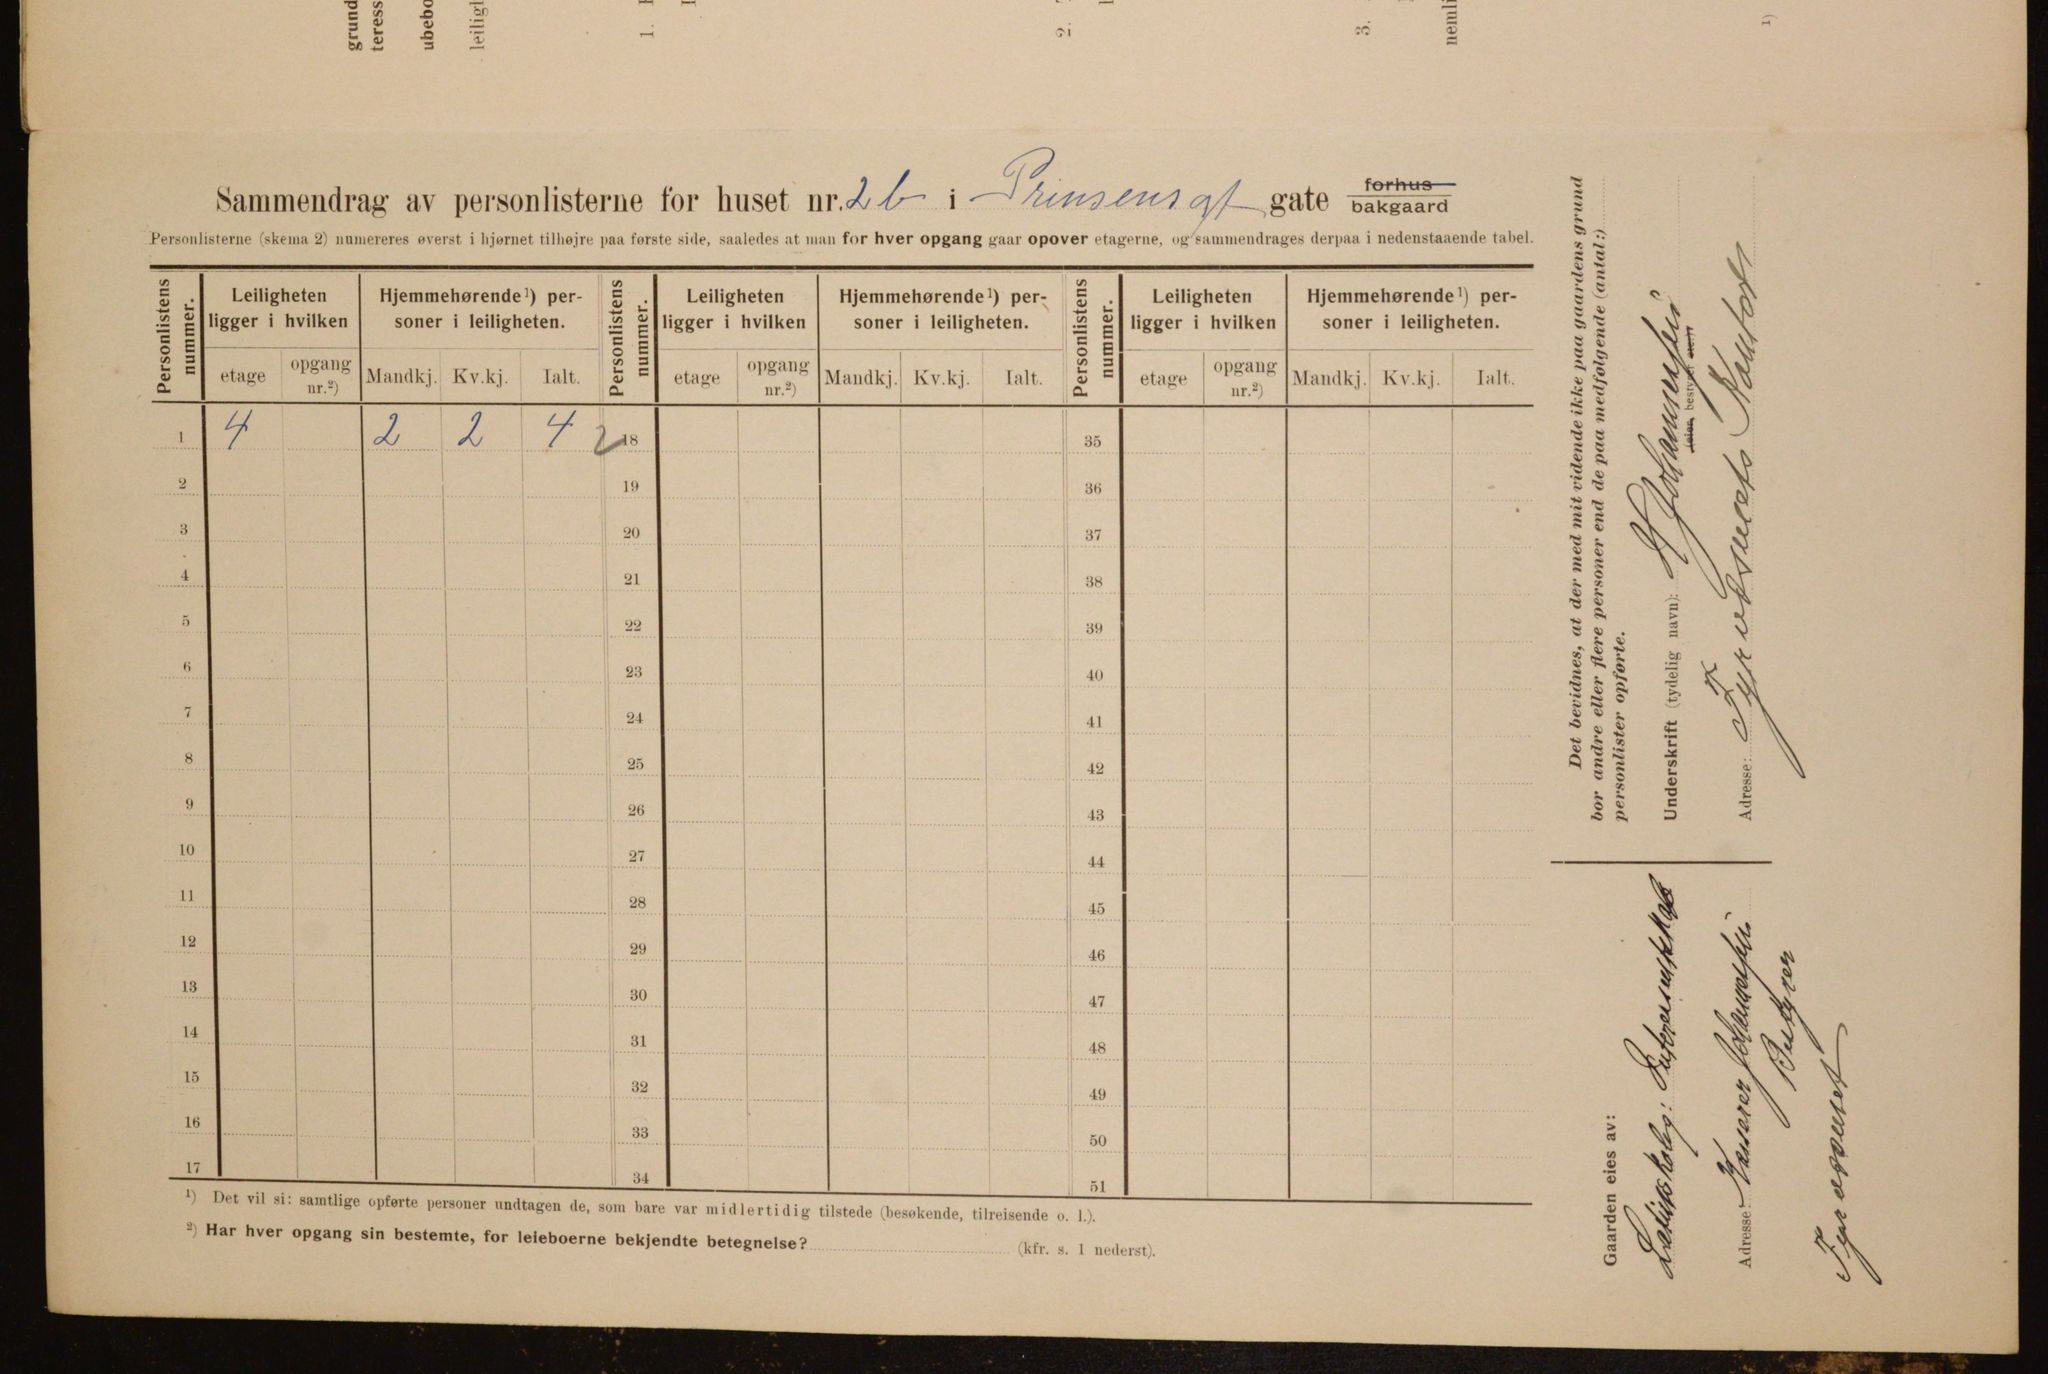 grund
teress
ubebo
leiligh
1.
2.
3.
nemli
1)
Sammendrag av personlisterne for huset nr. 2b i Prinsensgt gate forhus bakgaard
Personlisterne (skema 2) numereres øverst i hjørnet tilhøjre paa første side, saaledes at man for hver opgang gaar opover etagerne, og sammendrages derpaa i nedenstaaende tabel.
Personlistens nummer. Leiligheten ligger i hvilken Hjemmehørende 1) personer i leiligheten. Personlistens nummer. Leiligheten ligger i hvilken Hjemmehørende 1) personer i leiligheten. Personlistens nummer. Leiligheten ligger i hvilken Hjemmehørende 1) personer i leiligheten.
etage opgang nr. 2) Mandkj. Kv.kj. Ialt. etage opgang nr. 2) Mandkj. Kv.kj. Ialt. etage opgang nr. 2) Mandkj. Kv.kj. Ialt.
1 4 2 2 4 2 18 35
2 19 36
3 20 37
4 21 38
5 22 39
6 23 40
7 24 41
8 25 42
9 26 43
10 27 44
11 28 45
12 29 46
13 30 47
14 31 48
15 32 49
16 33 50
17 34 51
1) Det vil si: samtlige opførte personer undtagen de, som bare var midlertidig tilstede (besøkende, tilreisende o. l.).
2) Har hver opgang sin bestemte, for leieboerne bekjendte betegnelse? (kfr. s. 1 nederst).
Det bevidnes, at der med mit vidende ikke paa gaardens grund
bor andre eller flere personer end de paa medfølgende (antal:)
personlister opførte.
Underskrift (tydelig navn): Johannesen
leier, bestyrer
Adresse: Tyveosmets Kontor
Gaarden eies av:
Interesentskab
Adresse: Kasserer Johannesen